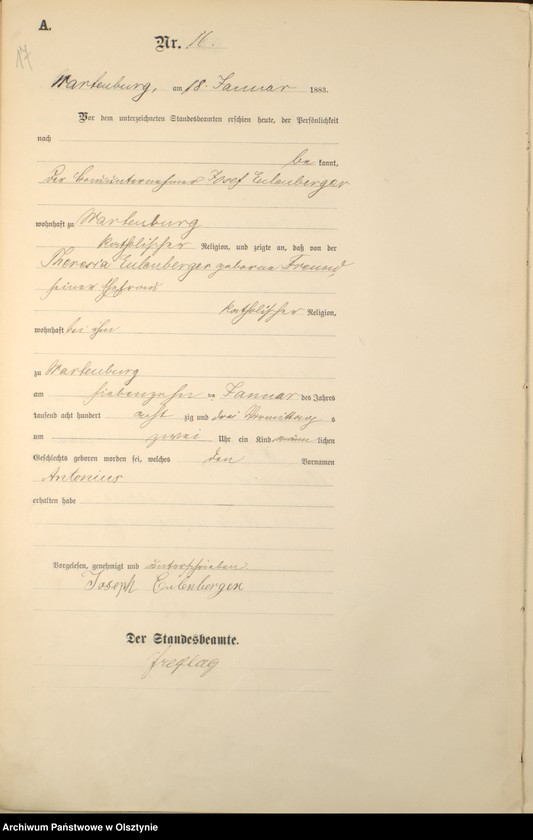 A.
17
Nr. 16.
Wartenburg, am 18. Januar 1883.
Vor dem unterzeichneten Standesbeamten erschien heute, der Persönlichkeit
nach
be kannt,
Der Bauunternehmer Josef Eulenberger
wohnhaft zu Wartenburg
katholischer Religion, und zeigte an, daß von der
Theresia Eulenberger geborne Freund,
seiner Ehefrau
katholischer Religion,
wohnhaft bei ihm
zu Wartenburg
am siebenzehn ten Januar des Jahres
tausend acht hundert acht zig und drei Vormittag s
um zwei Uhr ein Kind männ lichen
Geschlechts geboren worden sei, welches den Vornamen
Antonius
erhalten habe
Vorgelesen, genehmigt und unterschrieben
Joseph Eulenberger
Der Standesbeamte.
Freytag
Archiwum Państwowe w Olsztynie